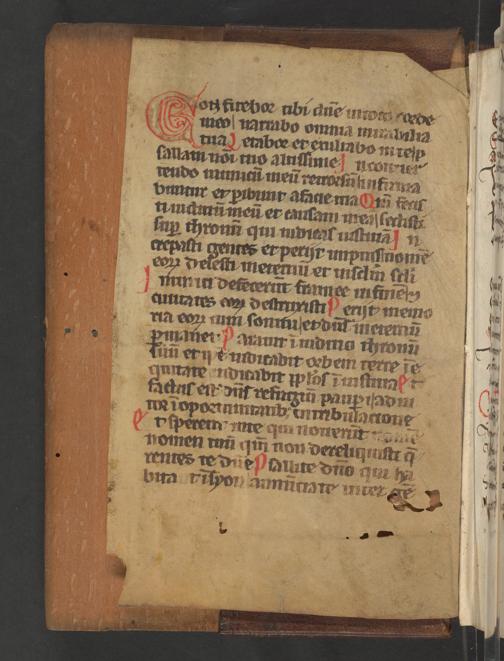 Confitebor tibi dñe in toto corde
meo narrabo omnia mirabilia
tua Letabor et exultabo in te / p
sallam nõi tuo altissime In conuer
tendo inimicũ meũ retrorsũ infirma
buntur et peribunt a facie tua Qm̃ fecis
ti iudiciũ meũ et causam mea sedisti
sup thronũ qui iudicas iusticiã In
crepasti gentes et perijt impius nomẽ
eoꝝ delesti in eternũ et in sclm̃ scli
Inimici defecerũt framee in finem
ciuitates eoꝝ destruxisti Perijt memo
ria eoꝝ cum sonitu et dñs in eternũ
permanet Parauit ĩ iudicio thronũ
suũ et ipẽ iudicabit orbem terre ĩ e
quitate iudicabit pplos ĩ iusticia et
factus est dñs refugiũ paupi adiu
tor ĩ oportunitatib; in tribulacione
et sperent in te qui nouerũt nomẽ
nomen tuũ qm̃ non dereliquisti q̃
rentes te dñe Psallite dño qui ha
bitat ĩ syon annũciate inter gẽ